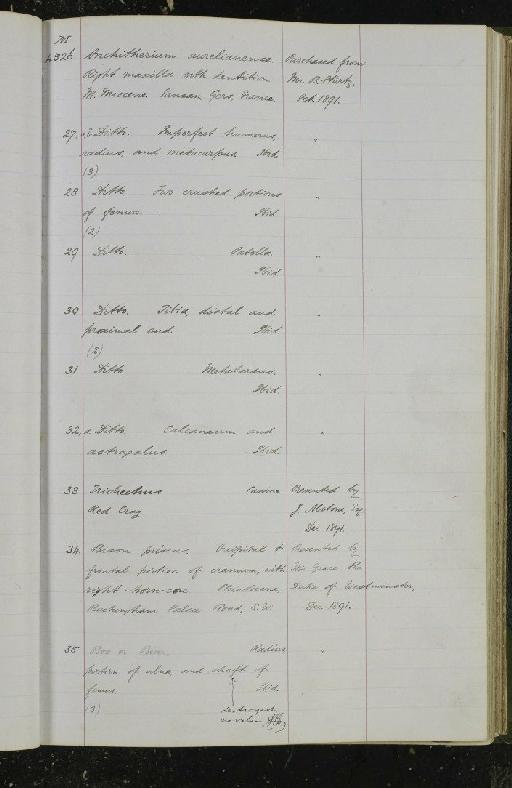 M
4326. Anchitherium aurelianense. Purchased from
Right maxilla with dentition Mr. B. Stürtz,
M. Miocene. Sansan, Gers, France. Oct. 1891.
27. Ditto. Imperfect humerus, "
radius, and metacarpus Ibid.
(3)
28 Ditto Two crushed portions "
of femur. Ibid.
(2)
29 Ditto. Patella. "
Ibid.
30 Ditto. Tibia, distal and "
proximal end. Ibid
(2)
31 Ditto Metatarsus. "
Ibid.
32, a Ditto Calcaneum and "
astragalus Ibid.
33 Trichechus Presented by
Red Crag J. Esq
Dec 1891.
34. Bison priscus. Occipital & Presented by
frontal portion of cranium, with His Grace the
right horn-core. Pleistocene, Duke of Westminster,
Buckingham Palace Road, S.W. Dec. 1891.
35 Bos or Bison. Radius "
portion of ulna, and shaft of
femur. Ibid.
(3) destroyed